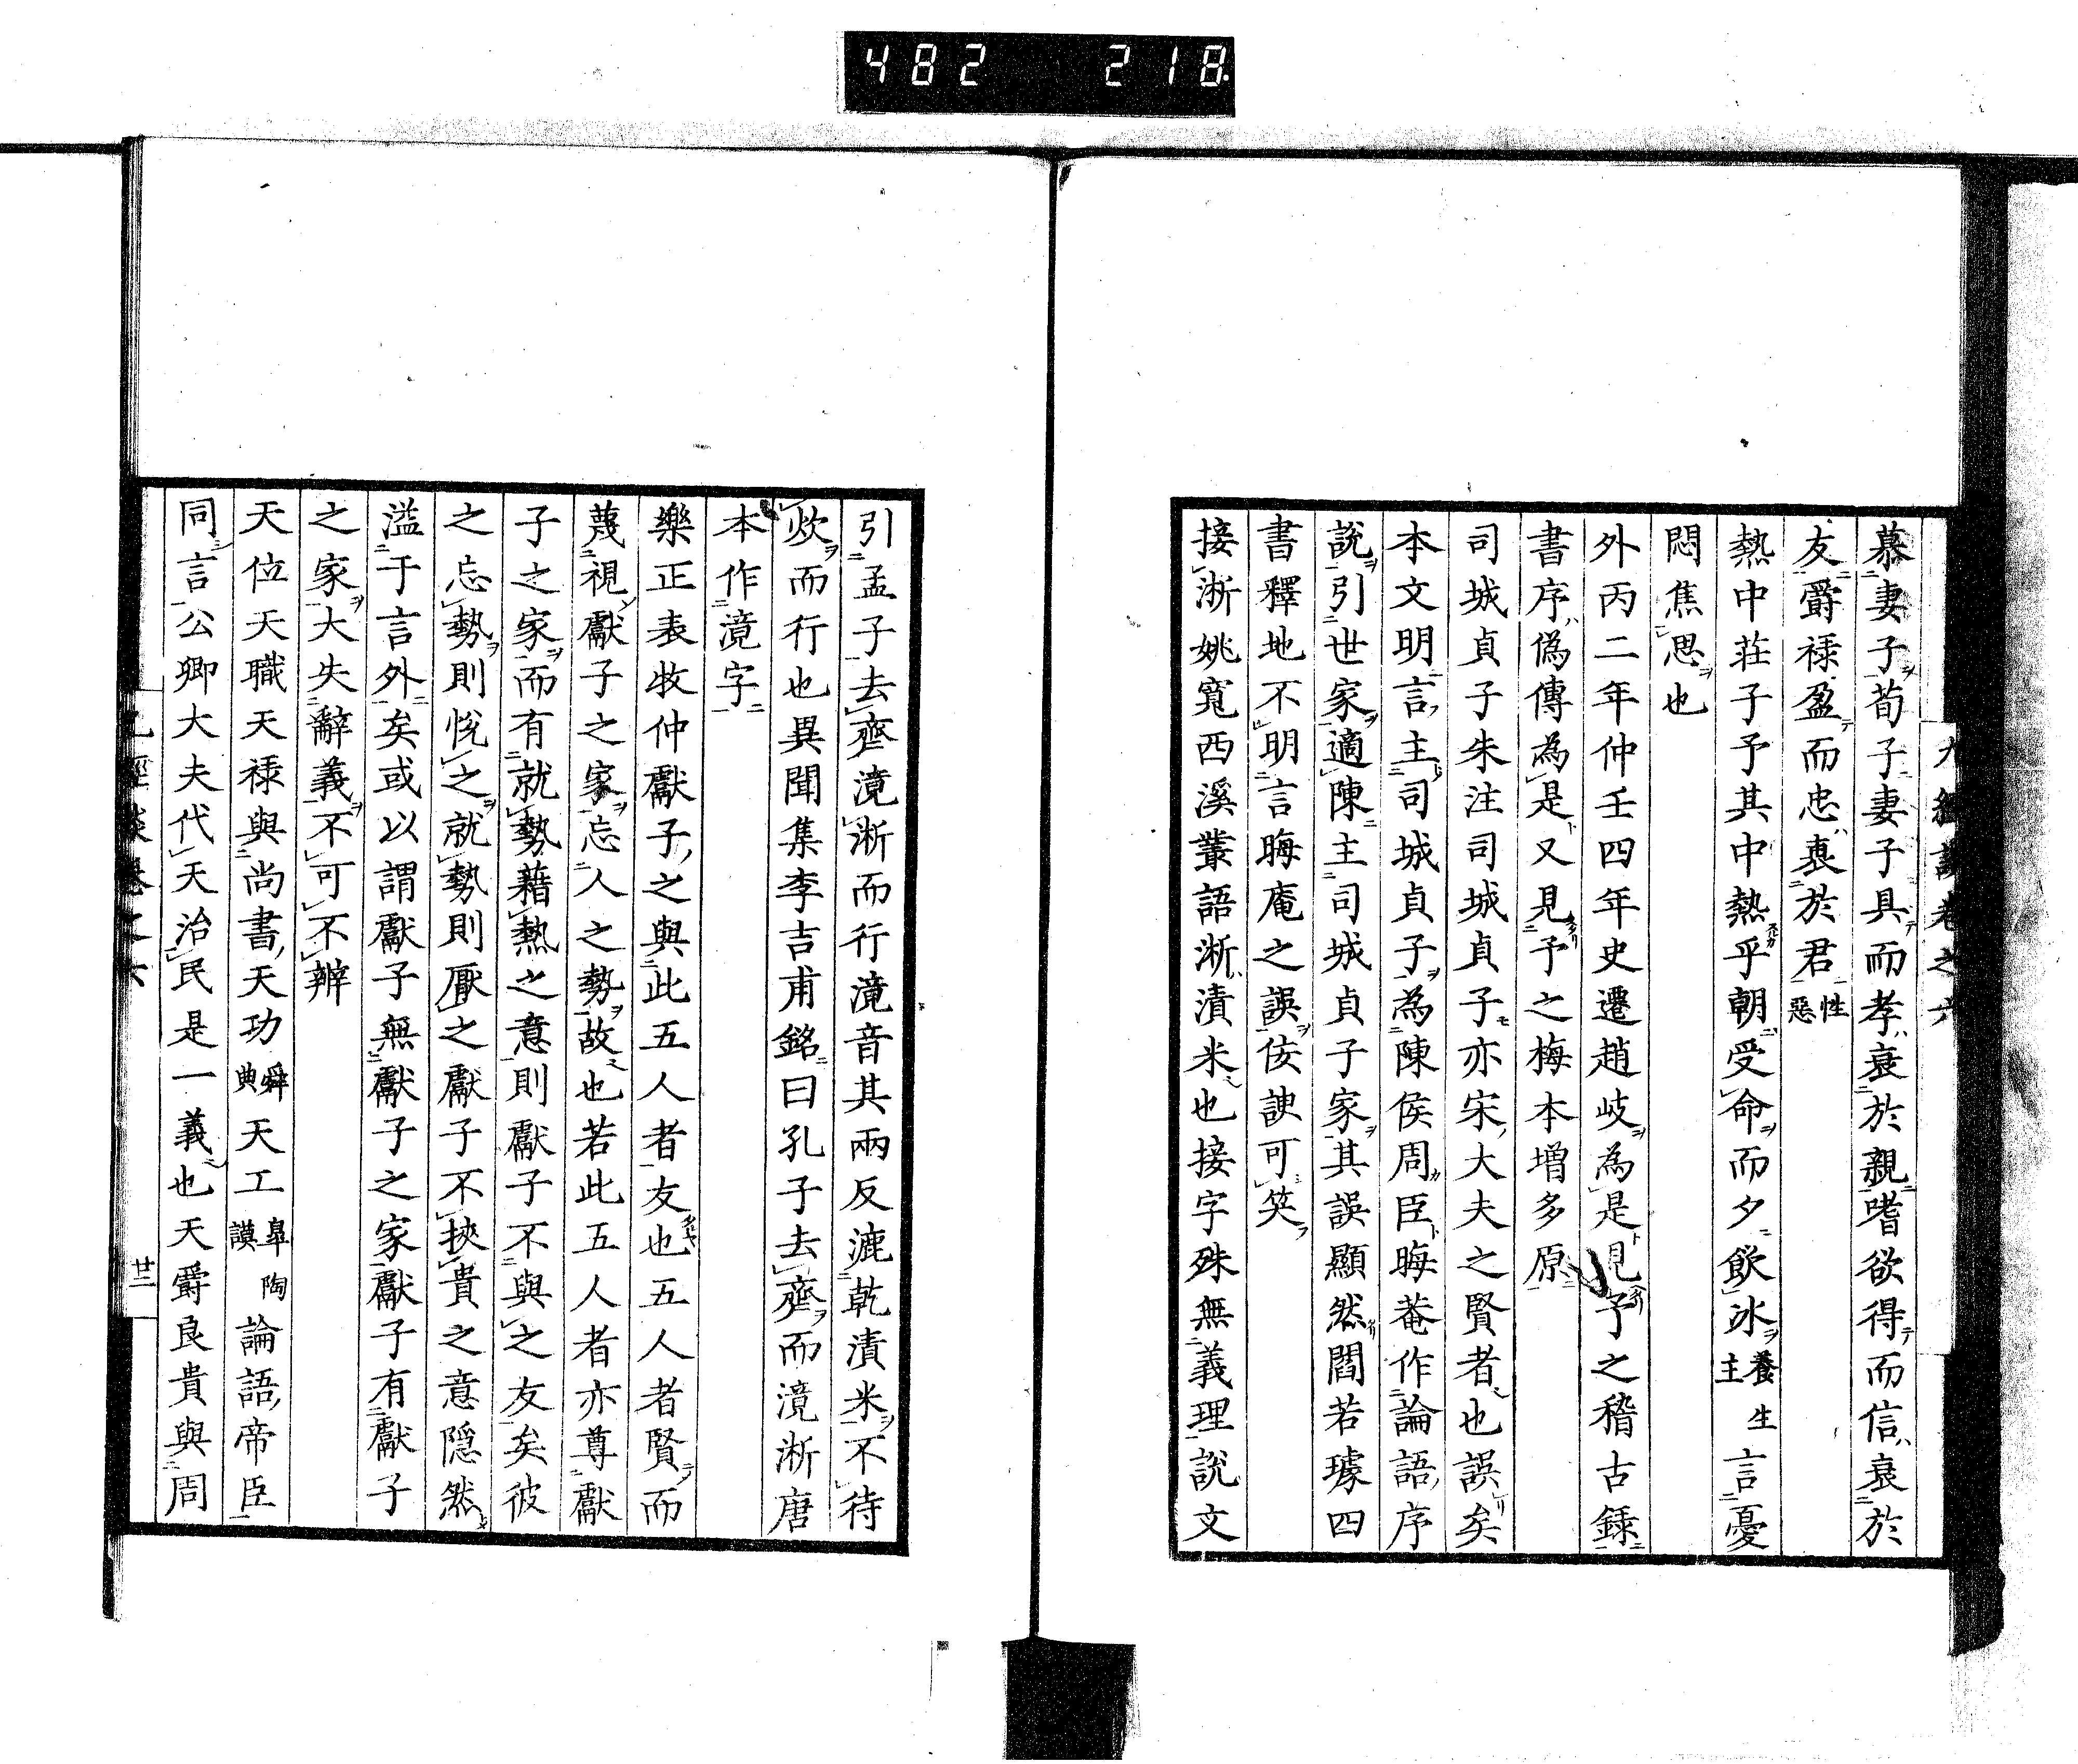 482 218
九經談卷之六
慕妻子荀子妻子具而孝衰於親嗜欲得而信衰於
友爵祿盈而忠衰於君性惡
熱中莊子予其中熱乎朝受命而夕飲冰養生主言憂
悶焦思也
外丙二年仲壬四年史遷趙岐為是見予之稽古錄
書序偽傳為是又見予之梅本增多原
司城貞子朱注司城貞子亦宋大夫之賢者也誤矣
本文明言主司城貞子為陳侯周臣晦菴作論語序
說引世家適陳主司城貞子家其誤顯然閻若璩四
書釋地不明言晦庵之誤佞諛可笑
接淅姚寬西溪叢語淅漬米也接字殊無義理說文
引孟子去齊滰淅而行滰音其兩反漉乾漬米不待
炊而行也異聞集李吉甫銘曰孔子去齊而滰淅唐
本作滰字
樂正裘牧仲獻子之與此五人者友也五人者賢而
蔑視獻子之家忘人之勢故也若此五人者亦尊獻
子之家而有就勢藉熱之意則獻子不與之友矣彼
之忘勢則悅之就勢則厭之獻子不挾貴之意隱然
溢于言外矣或以謂獻子無獻子之家獻子有獻子
之家大失辭義不可不辨
天位天職天祿與尚書天功舜典天工皋陶謨論語帝臣
同言公卿大夫代天治民是一義也天爵良貴與周
九經談卷之六
廿二